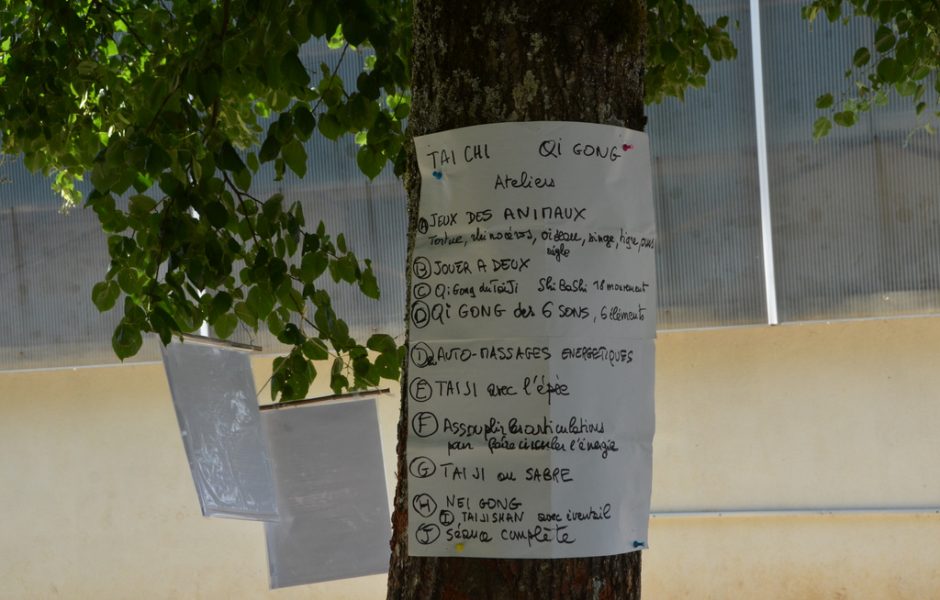 TAI CHI QI GONG
Ateliers
A JEUX DES ANIMAUX
Tortue, rhinocéros, oiseau, singe, tigre, ours
aigle
B JOUER A DEUX
C QiGong du TaiJi ShiBaShi 18 mouvement
D QI GONG des 6 SONS, 6 éléments
AUTO-MASSAGES ENERGETIQUES
E TAIJI avec l'épée
F Assouplir les articulations
pour faire circuler l'énergie
G TAIJI au SABRE
H NEI GONG
I TAIJISHAN avec éventail
J Séance complète